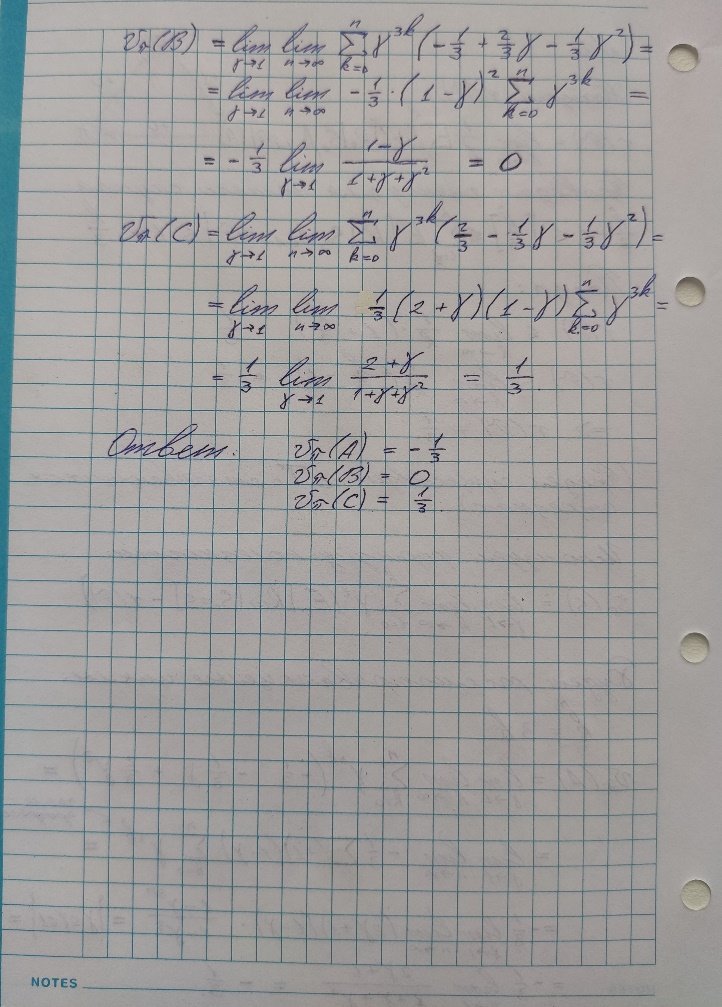 v_π(B) = lim_{γ→1} lim_{n→∞} Σ_{k=0}^{n} γ^{3k} (-1/3 + 2/3 γ - 1/3 γ²) =
= lim_{γ→1} lim_{n→∞} -1/3 · (1-γ)² Σ_{k=0}^{n} γ^{3k} =
= -1/3 lim_{γ→1} (1-γ)/(1+γ+γ²) = 0
v_π(C) = lim_{γ→1} lim_{n→∞} Σ_{k=0}^{n} γ^{3k} (2/3 - 1/3 γ - 1/3 γ²) =
= lim_{γ→1} lim_{n→∞} 1/3 (2+γ)(1-γ) Σ_{k=0}^{n} γ^{3k} =
= 1/3 lim_{γ→1} (2+γ)/(1+γ+γ²) = 1/3.
Ответ: v_π(A) = -1/3
v_π(B) = 0
v_π(C) = 1/3.
NOTES